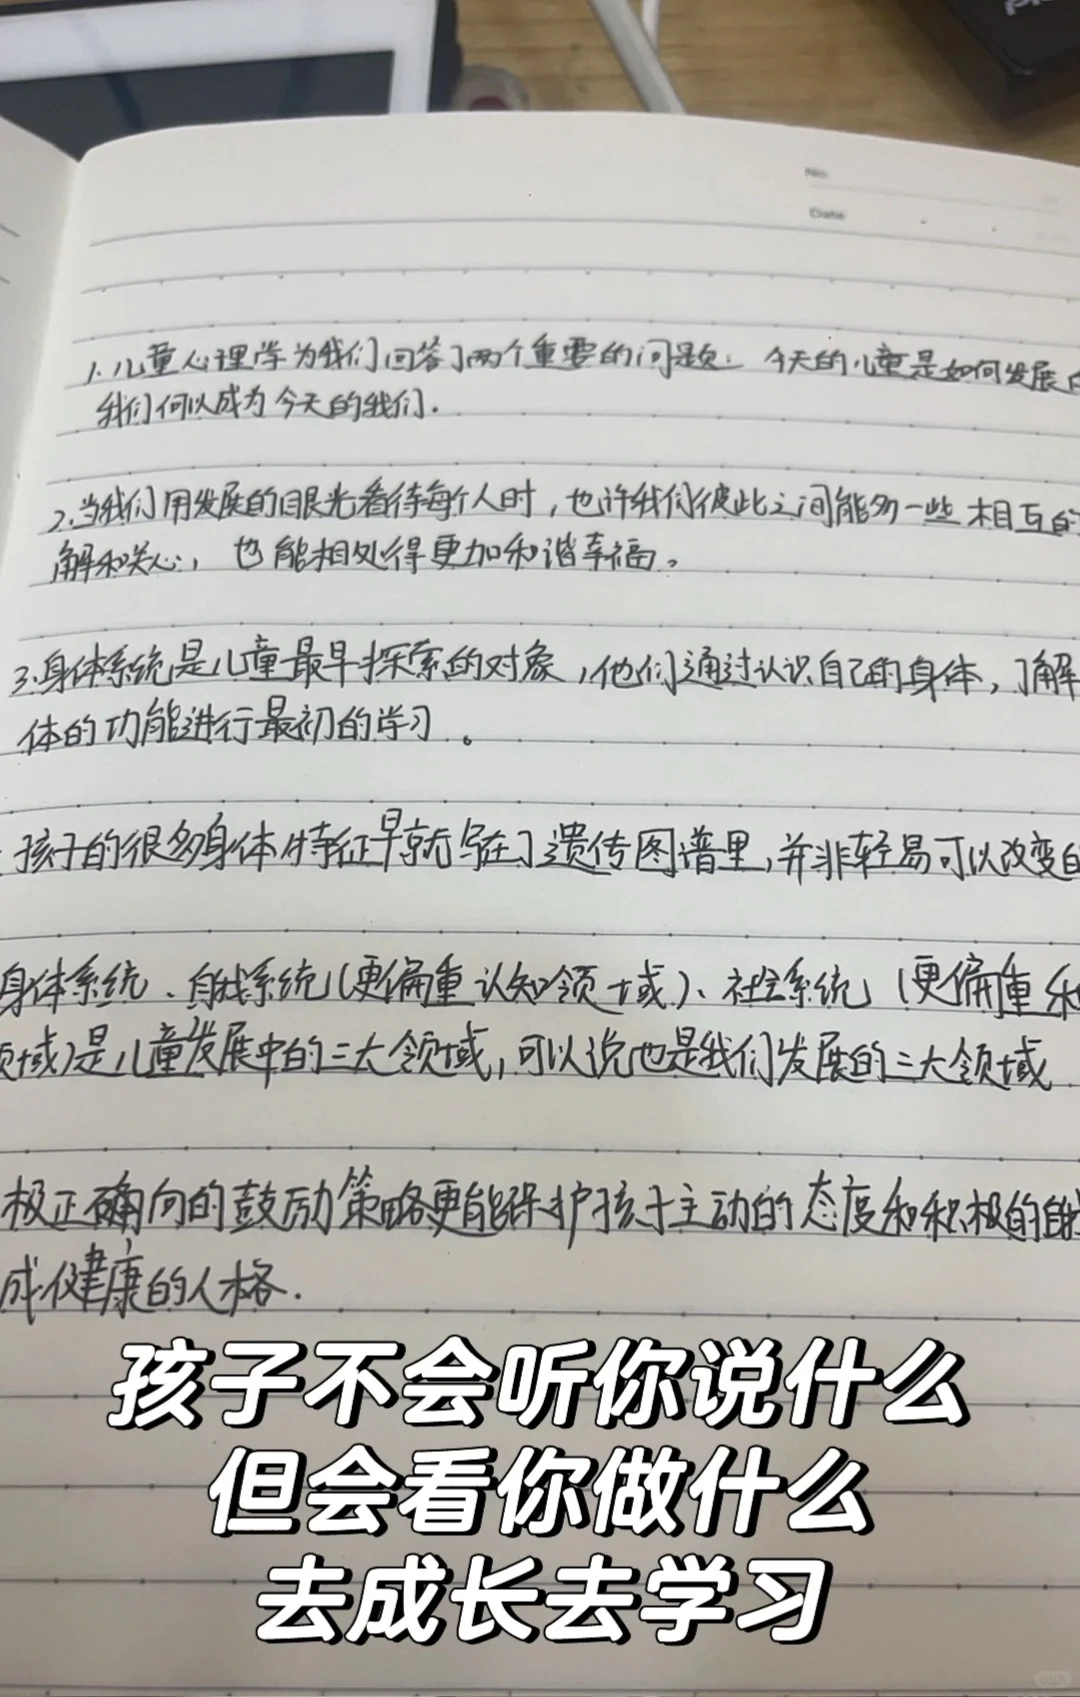 No.
Date
1.儿童心理学为我们回答了两个重要的问题：今天的儿童是如何发展
我们何以成为今天的我们.
2.当我们用发展的眼光看待每个人时，也许我们彼此之间能多一些相互的
解和关心，也能相处得更加和谐幸福。
3.身体系统是儿童最早探索的对象，他们通过认识自己的身体，了解
体的功能进行最初的学习。
孩子的很多身体特征早就写在了遗传图谱里，并非轻易可以改变的
身体系统、自我系统（更偏重认知领域）、社会系统（更偏重
领域）是儿童发展中的三大领域，可以说也是我们发展的三大领域
极正确向的鼓励策略更能保护孩子主动的态度和积极的自我
成健康的人格.
孩子不会听你说什么
但会看你做什么
去成长去学习